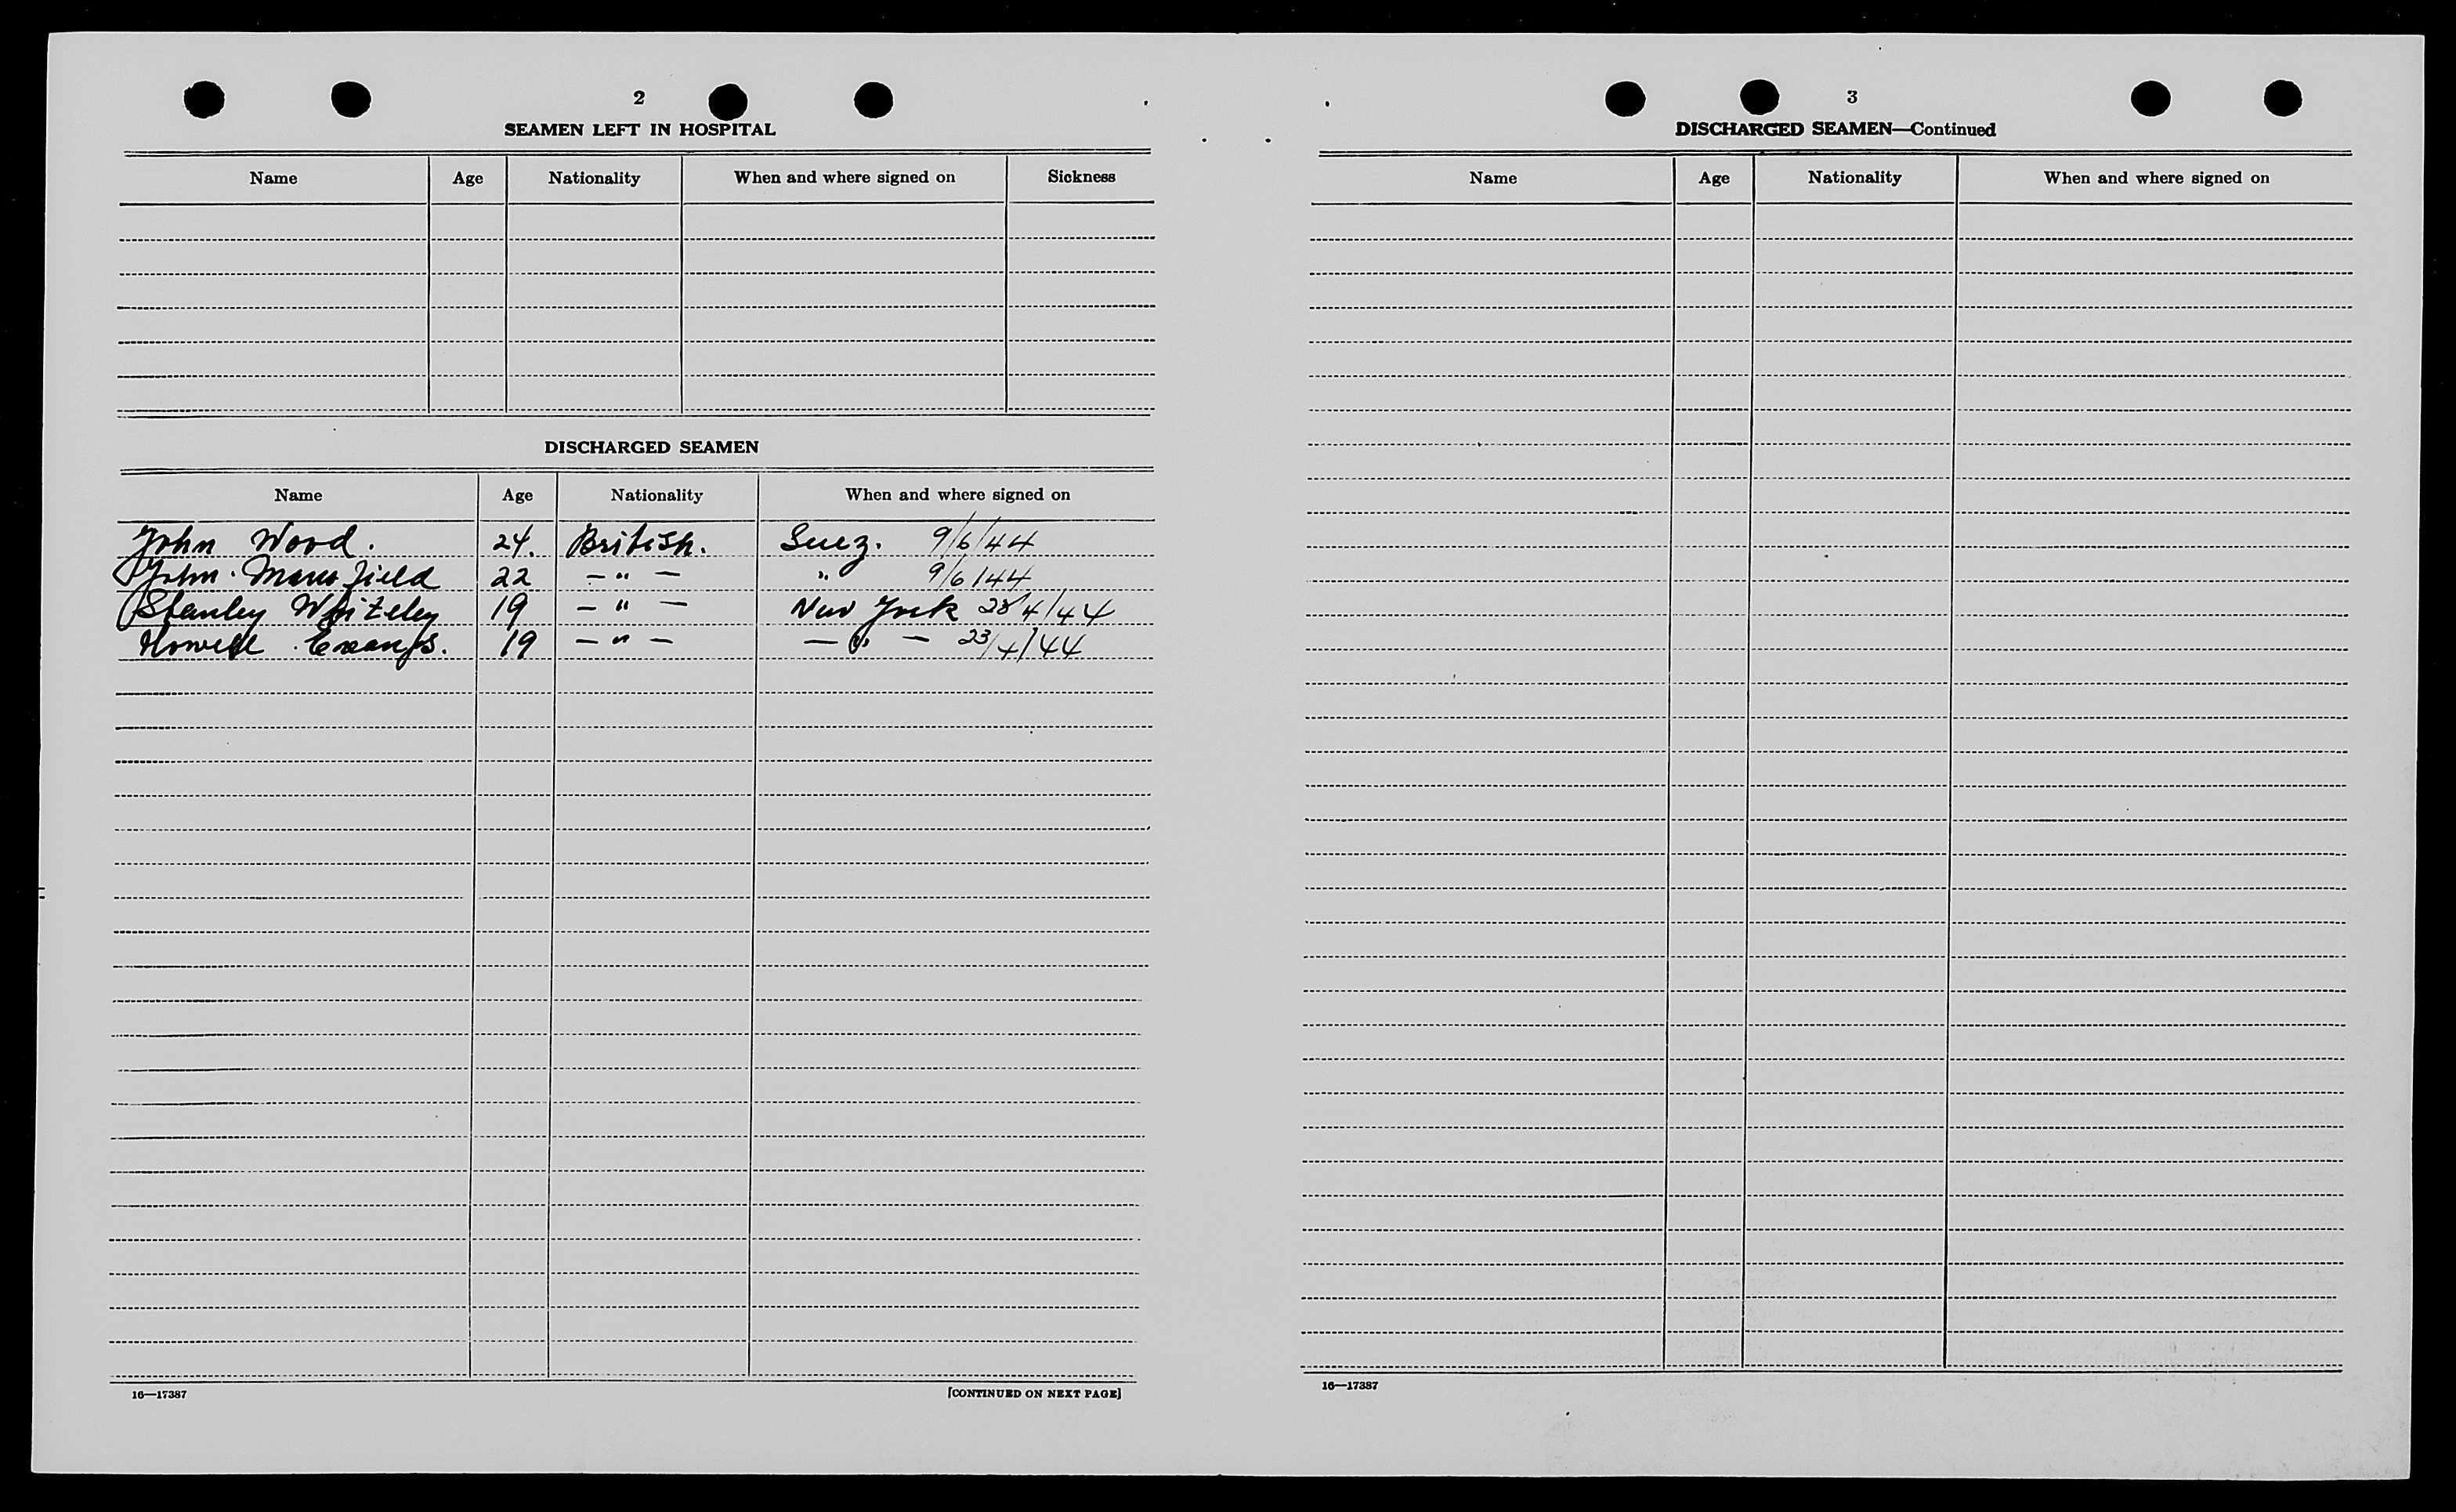 2
SEAMEN LEFT IN HOSPITAL
Name Age Nationality When and where signed on Sickness
DISCHARGED SEAMEN
Name Age Nationality When and where signed on
John Wood. 24. British. Suez. 9/6/44
John. Mansfield 22 - " - " 9/6/44
Stanley Whiteley 19 - " - New York 28/4/44
Howell Evans. 19 - " - - " - 23/4/44
16—17387 [CONTINUED ON NEXT PAGE]
3
DISCHARGED SEAMEN—Continued
Name Age Nationality When and where signed on
16—17387